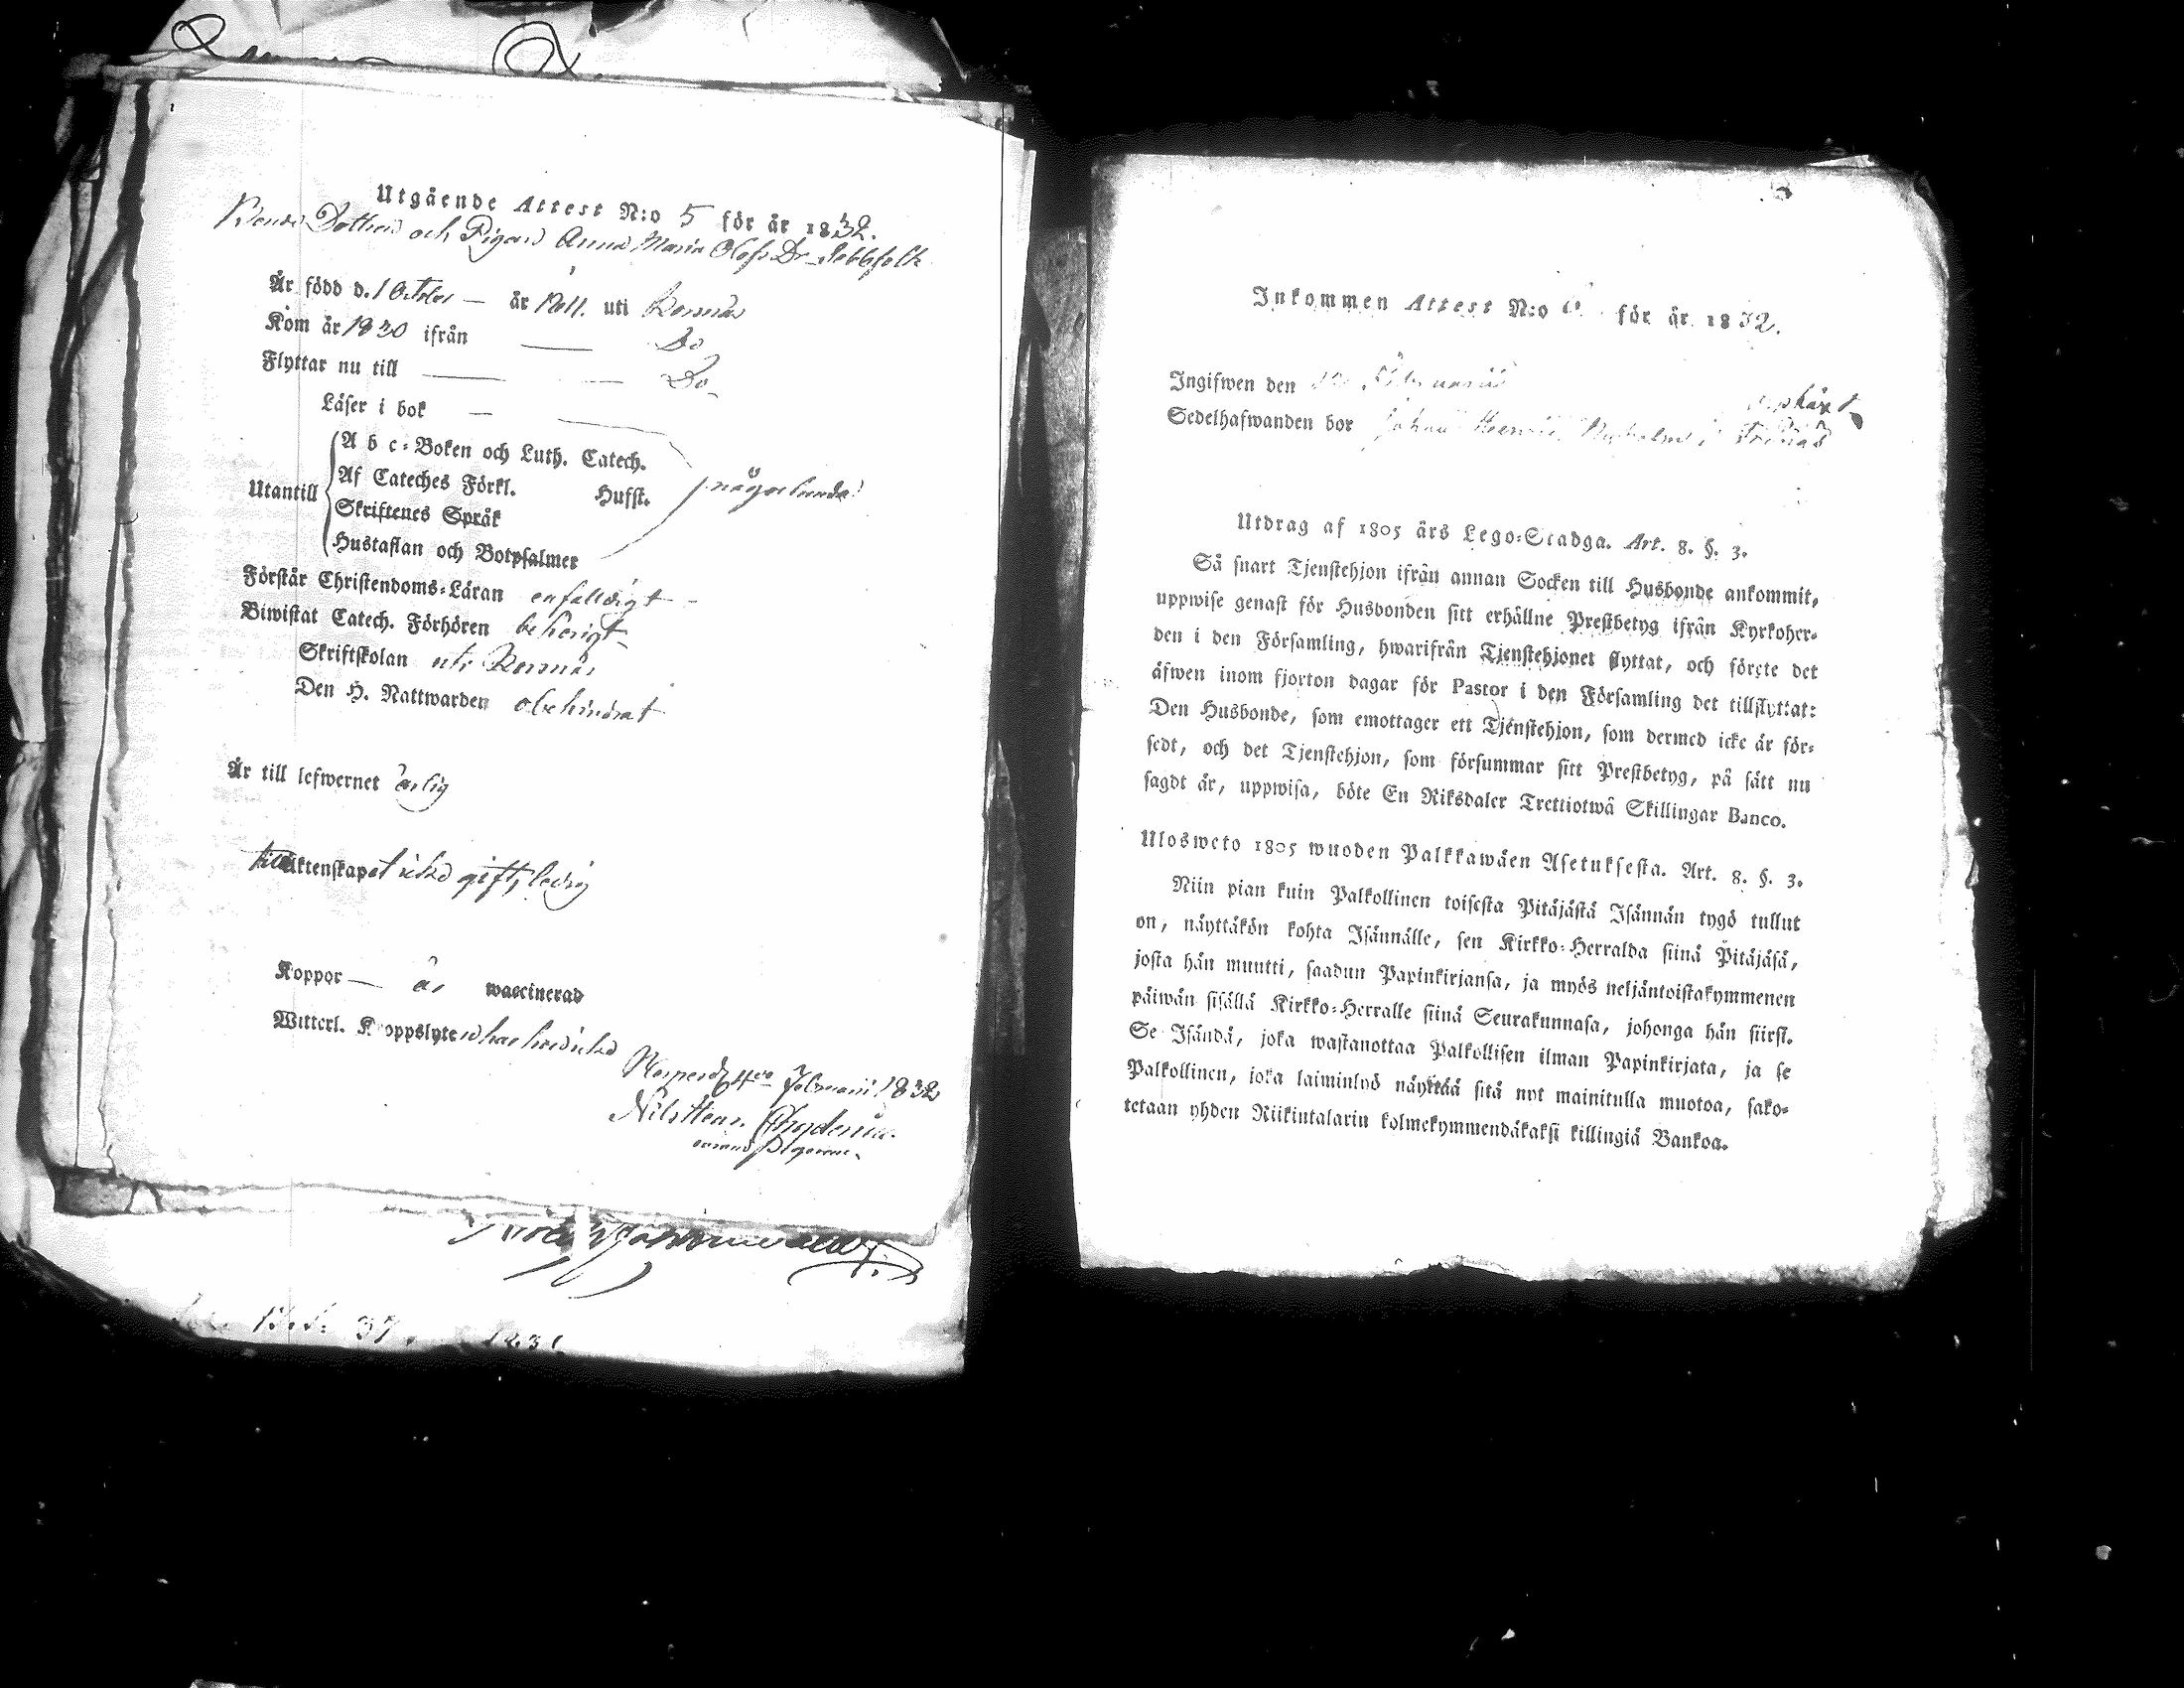 Utgående Attest N:o 5 för år 1832.
Bonde Dottren och Pigan Anna Maria Olofs Dr Jebbfolk
Är född d. 1 October — år 1811. uti
Kom år 1830 ifrån — Do
Flyttar nu till — — Do
Läser i bok —
A b c-Boken och Luth. Catech.
Af Cateches Förkl. Hufst.
Utantill någorlunda
Skriftenes Språk
Hustaflan och Botpsalmer
Förstår Christendoms-Läran enfalldigt
Biwistat Catech. Förhören behörigt
Skriftskolan uti
Den H. Nattwarden obehindrat
Är till lefwernet ärlig
till Äktenskapet icke gift, ledig
Koppor — är waccinerad
Witterl. Kroppslyte har hon icke
4de Februarii 1832
Nils Henr. Chydenius.
1831
Inkommen Attest N:o för år 1832.
Ingifwen den Februarii
Sedelhafwanden bor Johan i
Utdrag af 1805 års Lego-Stadga. Art. 8. §. 3.
Så snart Tjenstehjon ifrån annan Socken till Husbonde ankommit,
uppwise genast för Husbonden sitt erhållne Prestbetyg ifrån Kyrkoher-
den i den Församling, hwarifrån Tjenstehjonet flyttat, och förete det
äfwen inom fjorton dagar för Pastor i den Församling det tillflyttat:
Den Husbonde, som emottager ett Tjenstehjon, som dermed icke är för-
sedt, och det Tjenstehjon, som försummar sitt Prestbetyg, på sätt nu
sagdt är, uppwisa, böte En Riksdaler Trettiotwå Skillingar Banco.
Ulosweto 1805 wuoden Palkkawäen Asetuksesta. Art. 8. §. 3.
Niin pian kuin Palkollinen toisesta Pitäjästä Isännän tygö tullut
on, näyttäkön kohta Isännälle, sen Kirkko-Herralda siinä Pitäjäsä,
josta hän muutti, saadun Papinkirjansa, ja myös neljäntoistakymmenen
päiwän sisällä Kirkko-Herralle siinä Seurakunnasa, johonga hän siirst.
Se Isändä, joka wastanottaa Palkollisen ilman Papinkirjata, ja se
Palkollinen, joka laiminlyö näyttää sitä nyt mainitulla muotoa, sako-
tetaan yhden Riikintalarin kolmekymmendäkaksi killingiä Bankoa.